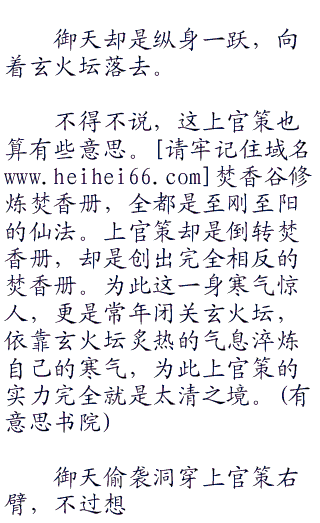 御天却是纵身一跃，向
着玄火坛落去。
不得不说，这上官策也
算有些意思。[请牢记住域名
www.heihei66.com]焚香谷修
炼焚香册，全都是至刚至阳
的仙法。上官策却是倒转焚
香册，却是创出完全相反的
焚香册。为此这一身寒气惊
人，更是常年闭关玄火坛，
依靠玄火坛炙热的气息淬炼
自己的寒气，为此上官策的
实力完全就是太清之境。(有
意思书院)
御天偷袭洞穿上官策右
臂，不过想